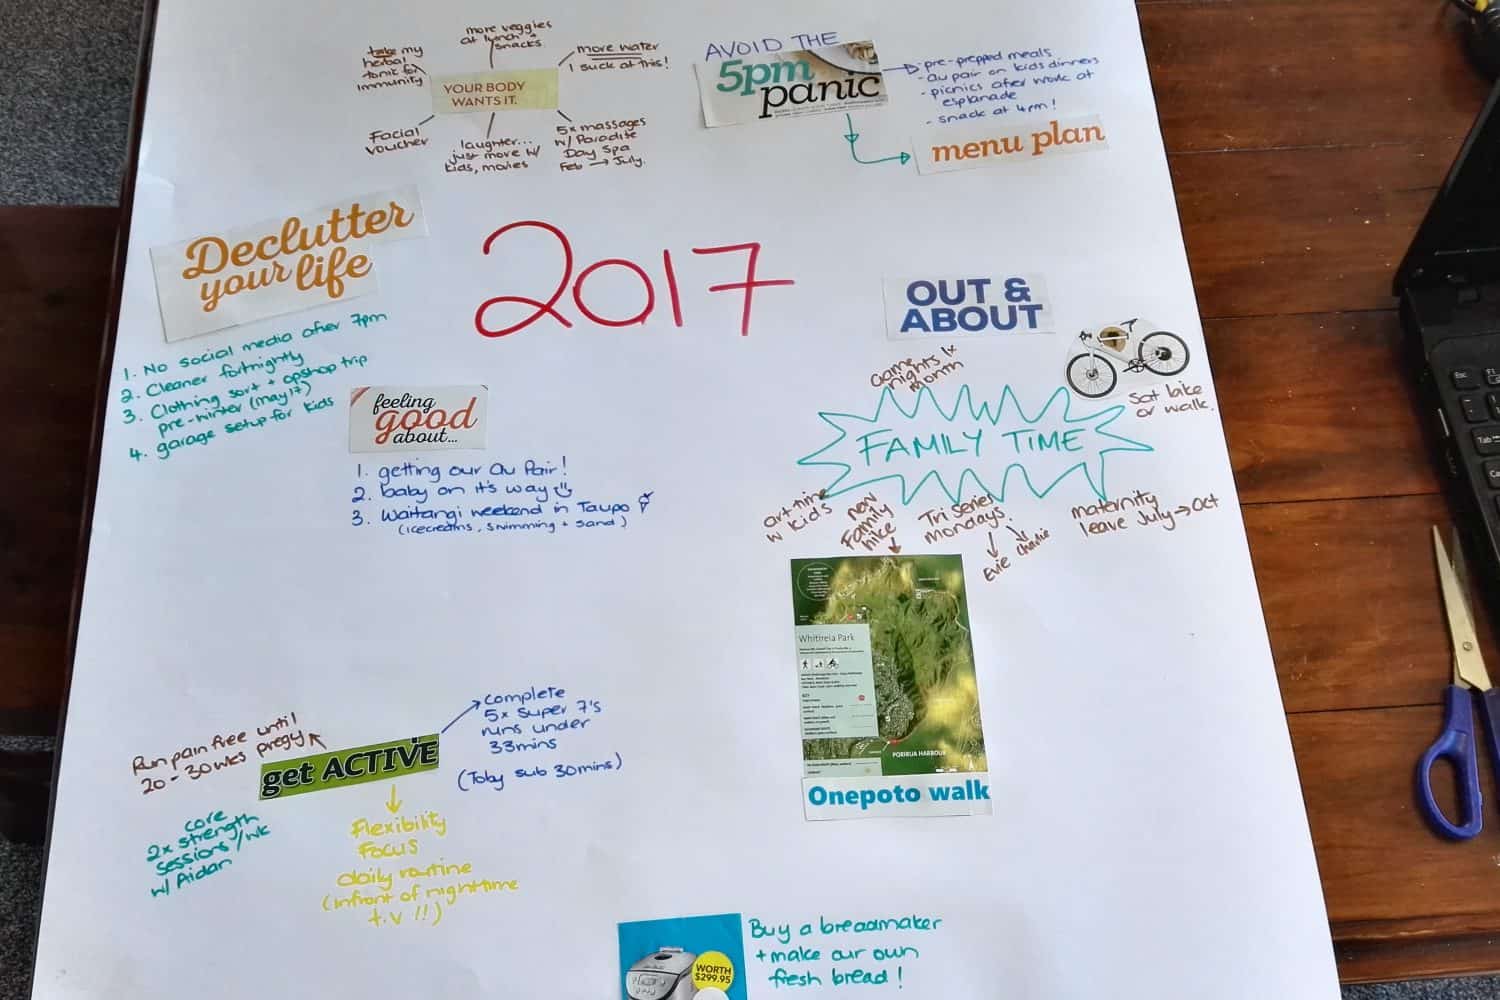 take my
herbal
tonic for
immunity
more veggies
at lunch + snacks.
more water
I suck at this!
YOUR BODY
WANTS IT.
Facial
voucher
laughter...
just more w/
kids, movies
5x massages
w/ Paradise
Day Spa
Feb → July.
AVOID THE
5pm
panic
- pre-prepped meals
- au pair on kids dinners
- picnics after work at
esplanade
- snack at 4pm!
menu plan
Declutter
your life
1. No social media after 7pm
2. Cleaner fortnightly
3. Clothing sort + opshop trip
pre-winter (may 17)
4. garage setup for kids
2017
OUT &
ABOUT
Sat bike
or walk.
Game
nights 1x
month
FAMILY TIME
art time
w kids
new
Family
hike
Tri Series
mondays.
Evie
Charlie
maternity
leave July → Oct
feeling
good
about...
1. getting our Au Pair!
2. baby on it's way
3. Waitangi weekend in Taupo
(icecreams, swimming + sand)
Whitireia Park
PORIRUA HARBOUR
Onepoto walk
Run pain free until
20 - 30wks preggy
get ACTIVE
Complete
5x Super 7's
runs under
33mins
(Toby sub 30mins)
core
2x strength
sessions/wk
w/ Aidan
Flexibility
Focus
daily routine
(infront of nighttime
t.v !!)
WORTH
$299.95
Buy a breadmaker
+ make our own
fresh bread!
Esc
F1
Tab